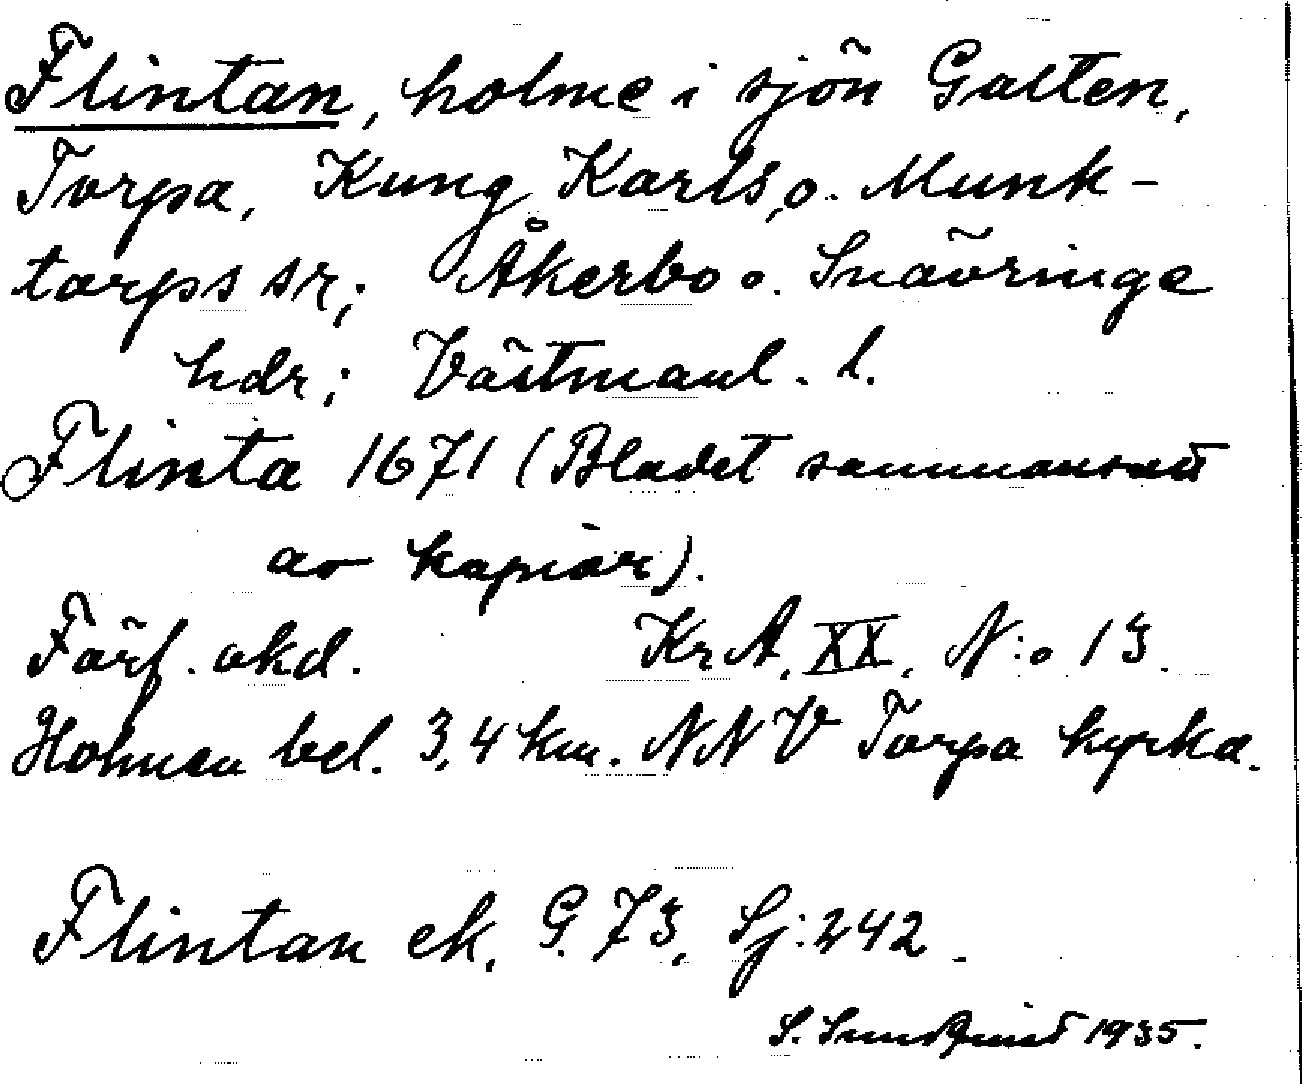 Flintan, holme i sjön Galten,
Torpa, Kung Karls, o. Munk-
torps sr; Åkerbo o. Snävringe
hdr; Västmanl. l.
Flinta 1671 (Bladet sammansatt
av kopior).
Förf. okd. KrA. XX, N:o 13.
Holmen bel. 3,4 km. NNV Torpa kyrka.
Flintan ek. G. 73, Sj: 242.
S. Sundquist 1935.